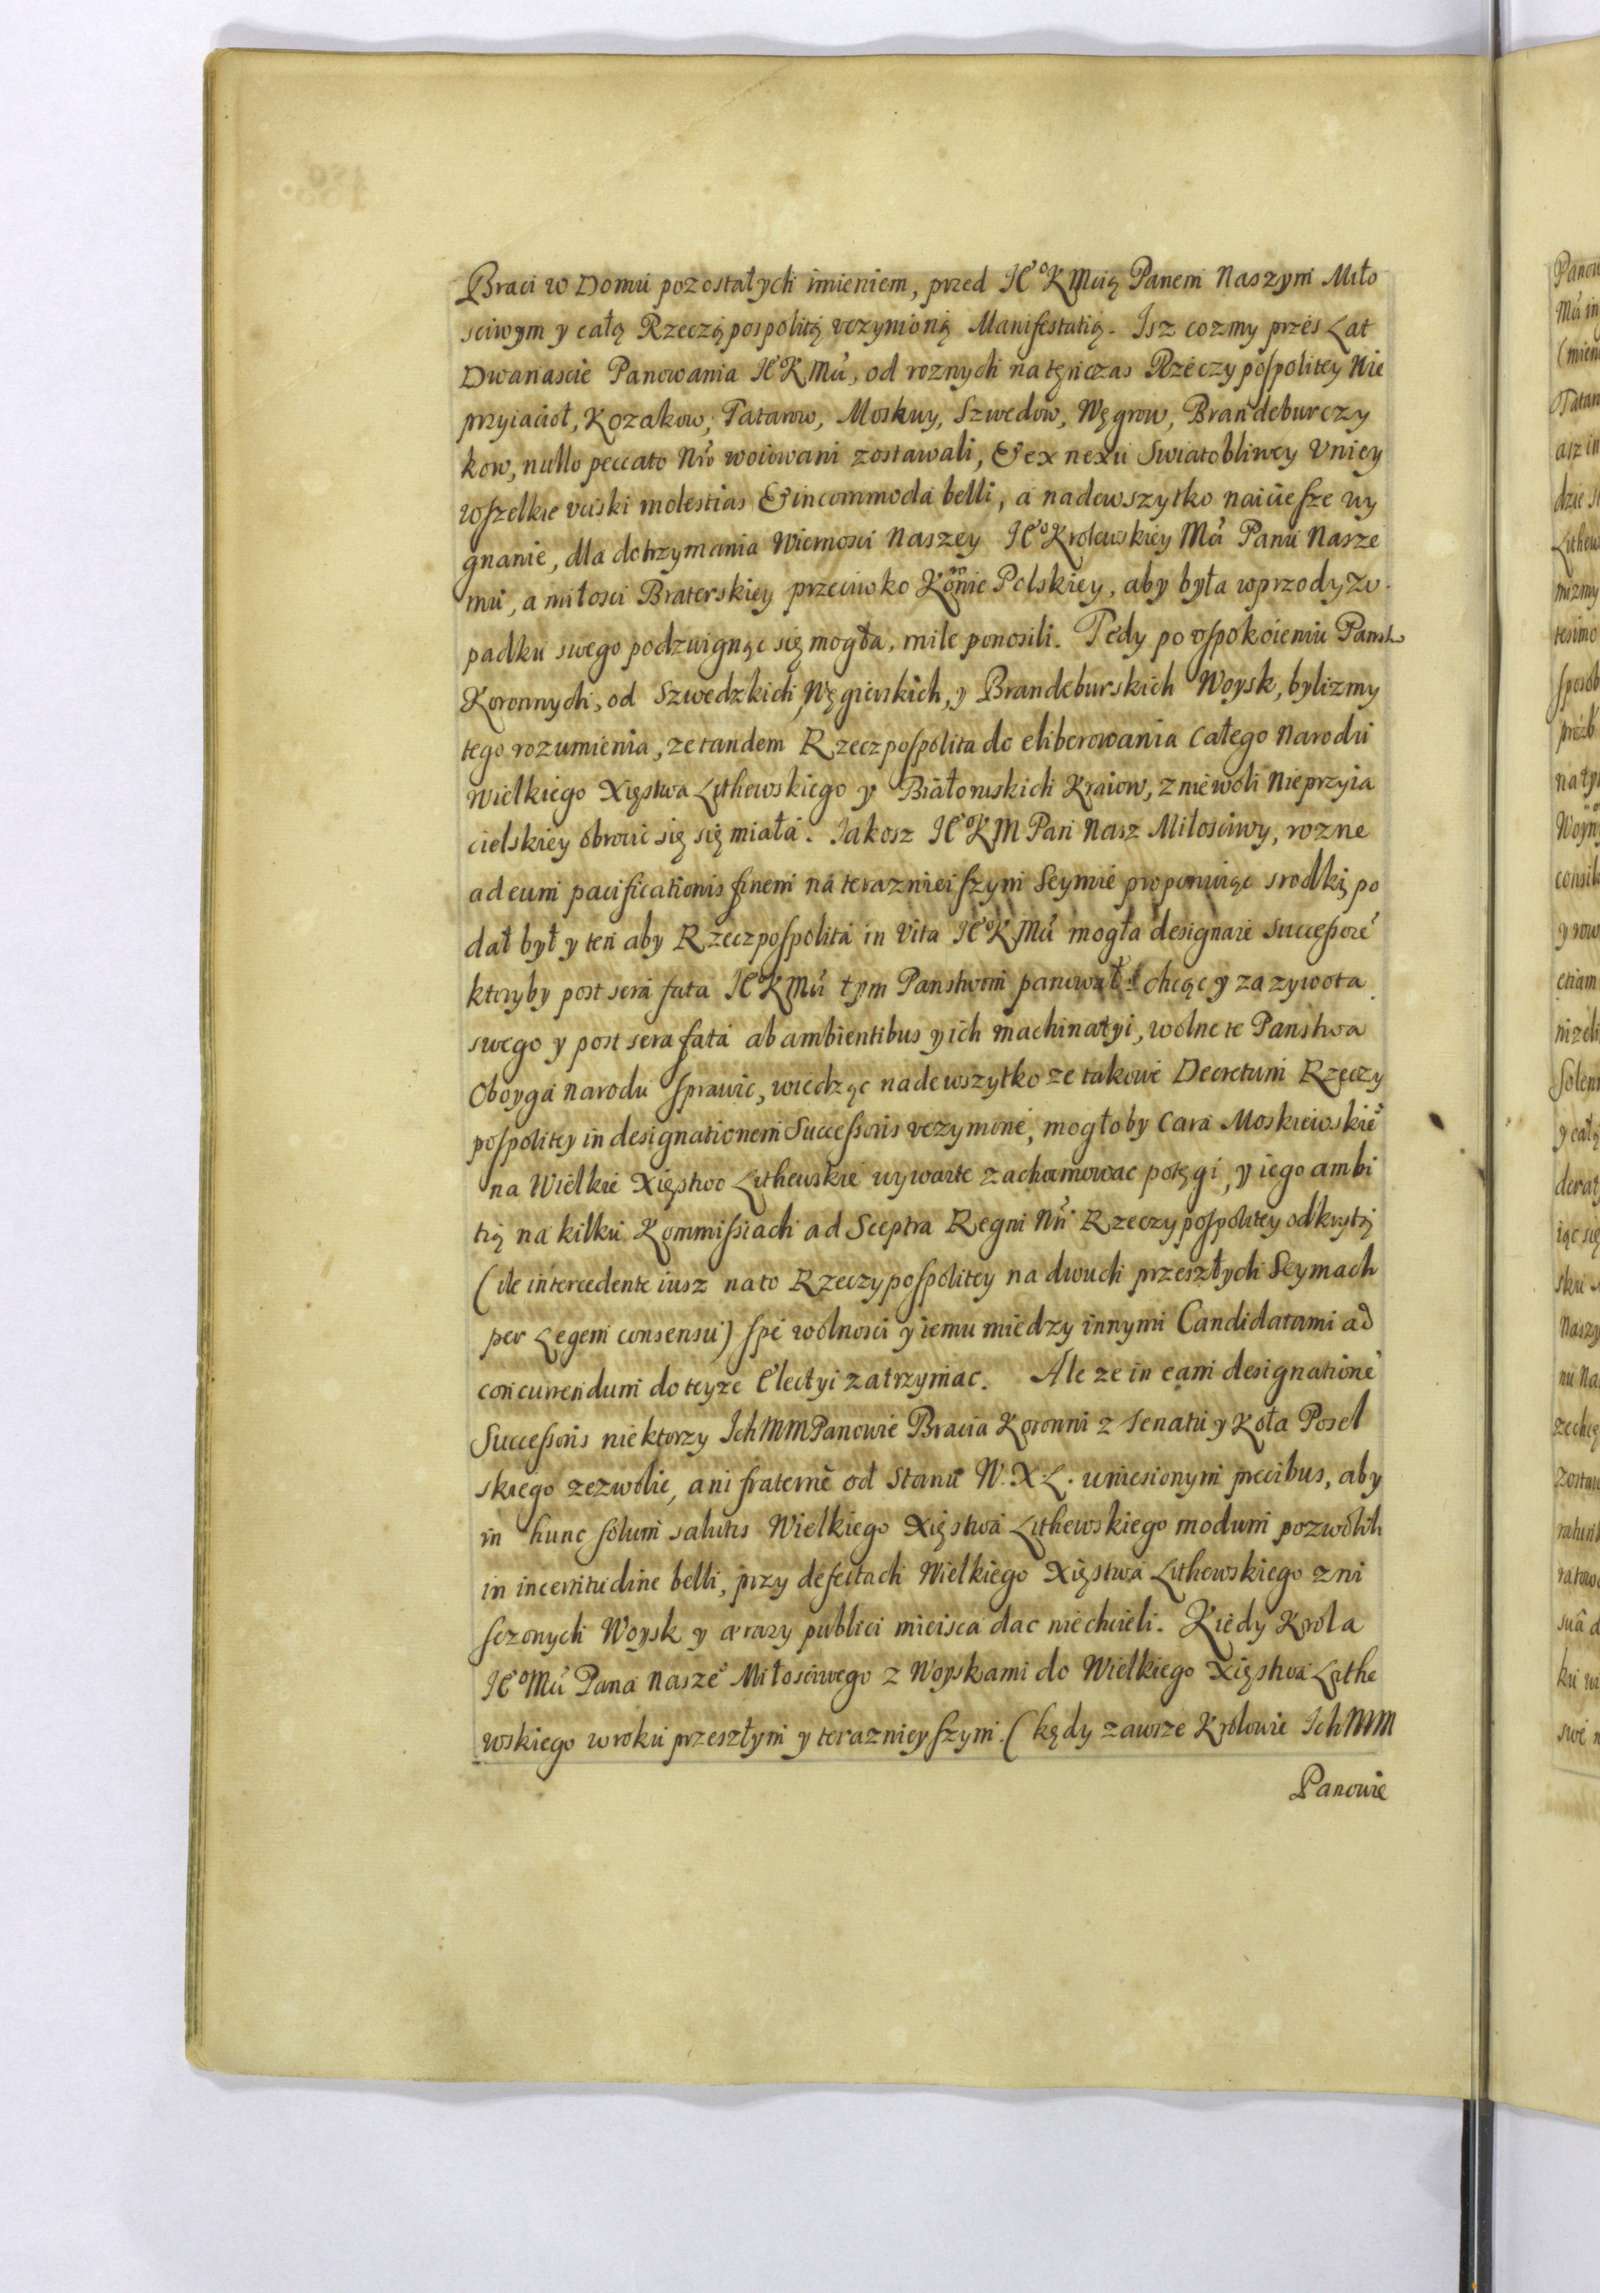 Braci w Domu pozostałych imieniem, przed JEoKMcią Panem Naszym Miło
sciwym y całą Rzeczą pospolitą vczynioną Manifestatią. Isz cozmy przes Lat
Dwanascie Panowania JEoKMći, od roznych na tęnczas Rzeczypospolitey Nie
przyiacioł, Kozakow, Tatarow, Moskwy, Szwedow, Węgrow, Brandeburczy
kow, nullo peccato Nro woiowani zostawali, & ex nexu Swiatobliwey Vniey
wszelkie vciski molestias & incommoda belli, a nadewszytko naicięsze wy
gnanie, dla dotrzymania Wiernosci Naszey JEoKrolewskiey Mći Panu Nasze
mu, a miłosci Braterskiey przeciwko Koronie Polskiey, aby była wprzody z v
padku swego podzwignąc się mogła, mile ponosili. Tedy po vspokoieniu Panstw
Koronnych, od Szwedzkich, Węgierskich, y Brandeburskich Woysk, bylizmy
tego rozumienia, ze tandem Rzeczpospolita do eliberowania całego Narodu
Wielkiego Xięstwa Lithewskiego y Białoruskich Kraiow, z niewoli Nieprzyia
cielskiey obrocic się się miała. Iakosz JEoKM Pan Nasz Miłosciwy, rozne
ad eum pacificationis finem na teraznieiszym Seymie proponuiąc srodki, po
dał był y ten aby Rzeczpospolita in Vita JEoKMći mogła designare Successorē
ktoryby post sera fata JEoKMći tym Panstwom panował chcąc y za zywota
swego y post sera fata ab ambientibus y ich machinatyi, wolne te Panstwa
Oboyga Narodu sprawic, wiedząc nadewszytko ze takowe Decretum Rzeczy
pospolitey in designationem Successoris vczynione, mogłoby Cara Moskiewskieo
na Wielkie Xięstwo Lithewskie wywarte zachamowac potęgi, y iego ambi
tią na kilku Kommissiach ad Sceptra Regni Nri Rzeczypospolitey odkrytą
(ile intercedente iusz na to Rzeczypospolitey na dwuch przeszłych Seymach
per Legem consensu) spe wolnosci y iemu miedzy innymi Candidatami ad
concurrendum do teyze Electyi zatrzymac. Ale ze in eam designationē
Successoris niektorzy IchMMPanowie Bracia Koronni z Senatu y Koła Posel
skiego zezwolic, ani fraternè od Stanu W.X.L. wniesionym precibus, aby
in hunc solum salutis Wielkiego Xięstwa Lithewskiego modum pozwolili
in incertitudine belli, przy defectach Wielkiego Xięstwa Lithewskiego zni
sczonych Woysk y ærary publici mieisca dac niechcieli. Kiedy Krola
JEoMći Pana Naszeo Miłosciwego z Woyskami do Wielkiego Xięstwa Lithe
wskiego w roku przeszłym y teraznieyszym. (kędy zawsze Krolowie IchMM
Panowie